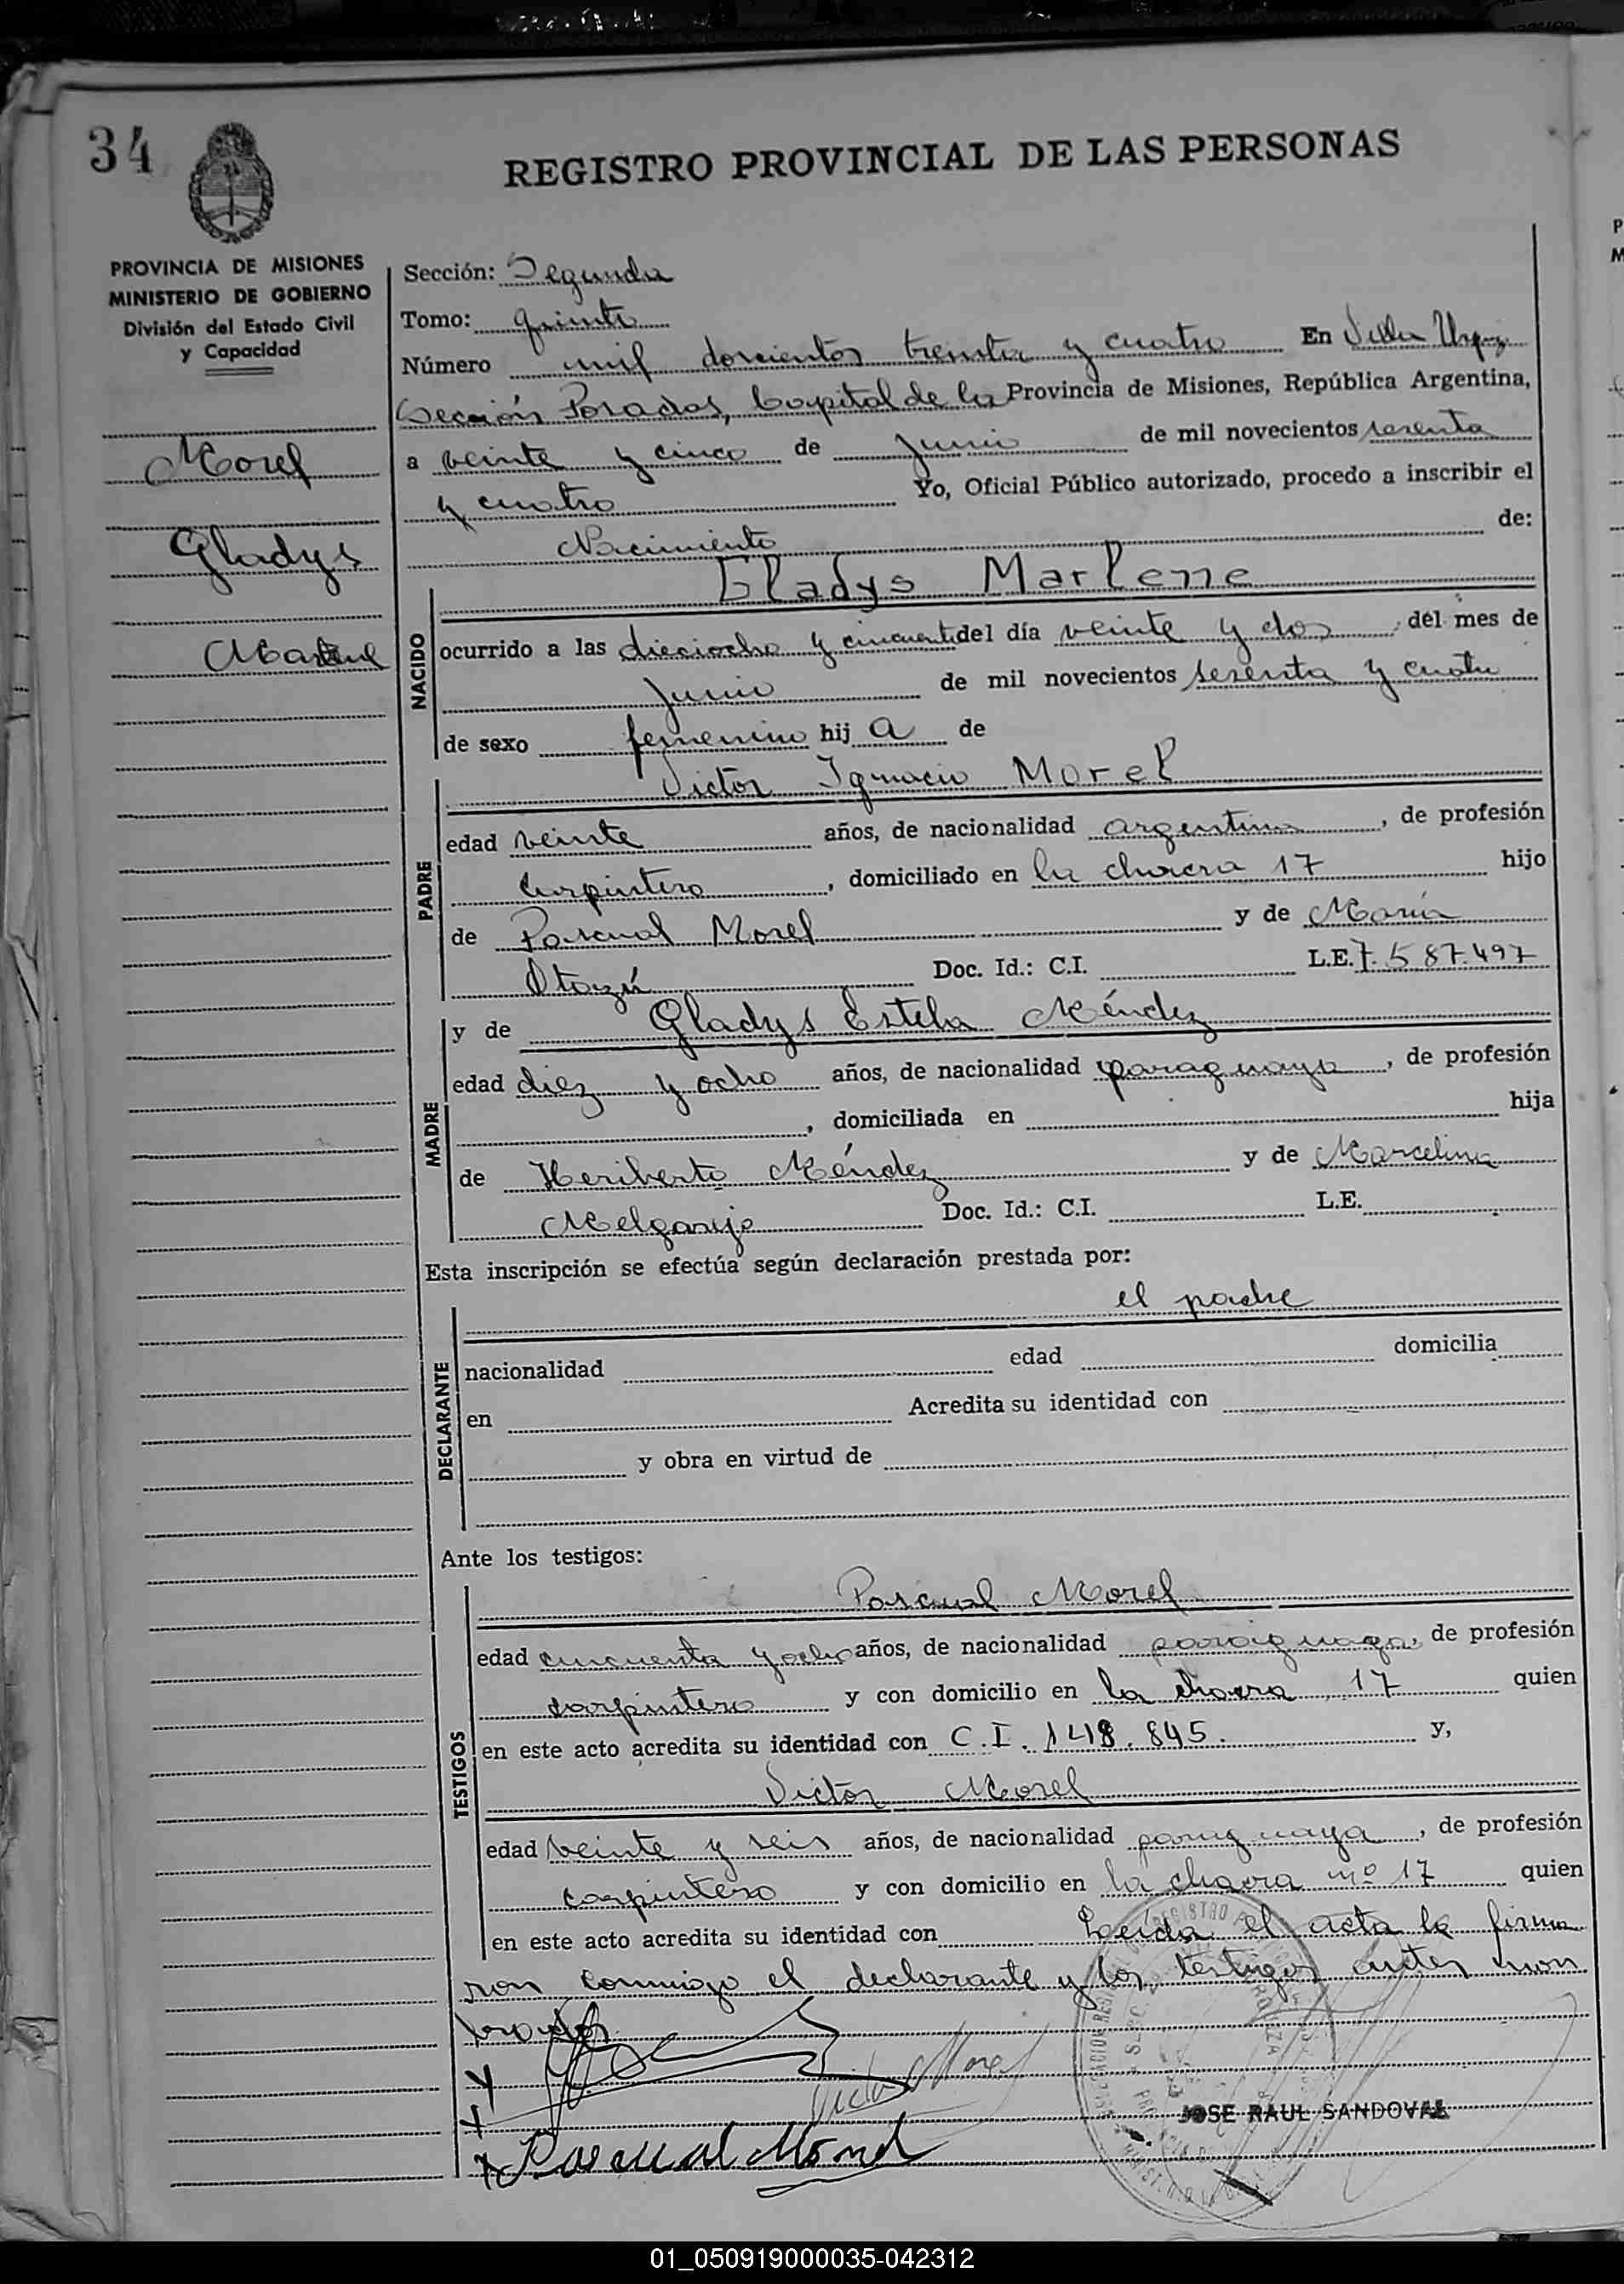 34
REGISTRO PROVINCIAL DE LAS PERSONAS
PROVINCIA DE MISIONES
MINISTERIO DE GOBIERNO
División del Estado Civil
y Capacidad
Morel
Gladys
Marlene
Sección: Segunda
Tomo: quinto
Número mil doscientos treinta y cuatro En Villa Urquiza
Sección Posadas, Capital de la Provincia de Misiones, República Argentina,
a veinte y cinco de junio de mil novecientos sesenta
y cuatro Yo, Oficial Público autorizado, procedo a inscribir el
Nacimiento de:
NACIDO
Gladys Marlene
ocurrido a las dieciocho y cincuenta del día veinte y dos del mes de
junio de mil novecientos sesenta y cuatro
de sexo femenino hij a de
PADRE
Victor Ignacio Morel
edad veinte años, de nacionalidad argentina, de profesión
Carpintero, domiciliado en la chacra 17 hijo
de Pascual Morel y de María
Otazú Doc. Id.: C.I. L.E. 7.587.497
MADRE
y de Gladys Estela Méndez
edad diez y ocho años, de nacionalidad paraguaya, de profesión
, domiciliada en hija
de Heriberto Méndez y de Marcelina
Melgarejo Doc. Id.: C.I. L.E.
Esta inscripción se efectúa según declaración prestada por:
DECLARANTE
el padre
nacionalidad edad domicilia
en Acredita su identidad con
y obra en virtud de
Ante los testigos:
TESTIGOS
Pascual Morel
edad cincuenta y ocho años, de nacionalidad paraguaya, de profesión
carpintero y con domicilio en la chacra 17 quien
en este acto acredita su identidad con C.I. 148.845. y,
Victor Morel
edad veinte y seis años, de nacionalidad paraguaya, de profesión
carpintero y con domicilio en la chacra nº 17 quien
en este acto acredita su identidad con Leída el acta la firma
ron conmigo el declarante y los testigos antes nom
brados
Victor Morel
JOSE RAUL SANDOVAL
Pascual Morel
01_050919000035-042312